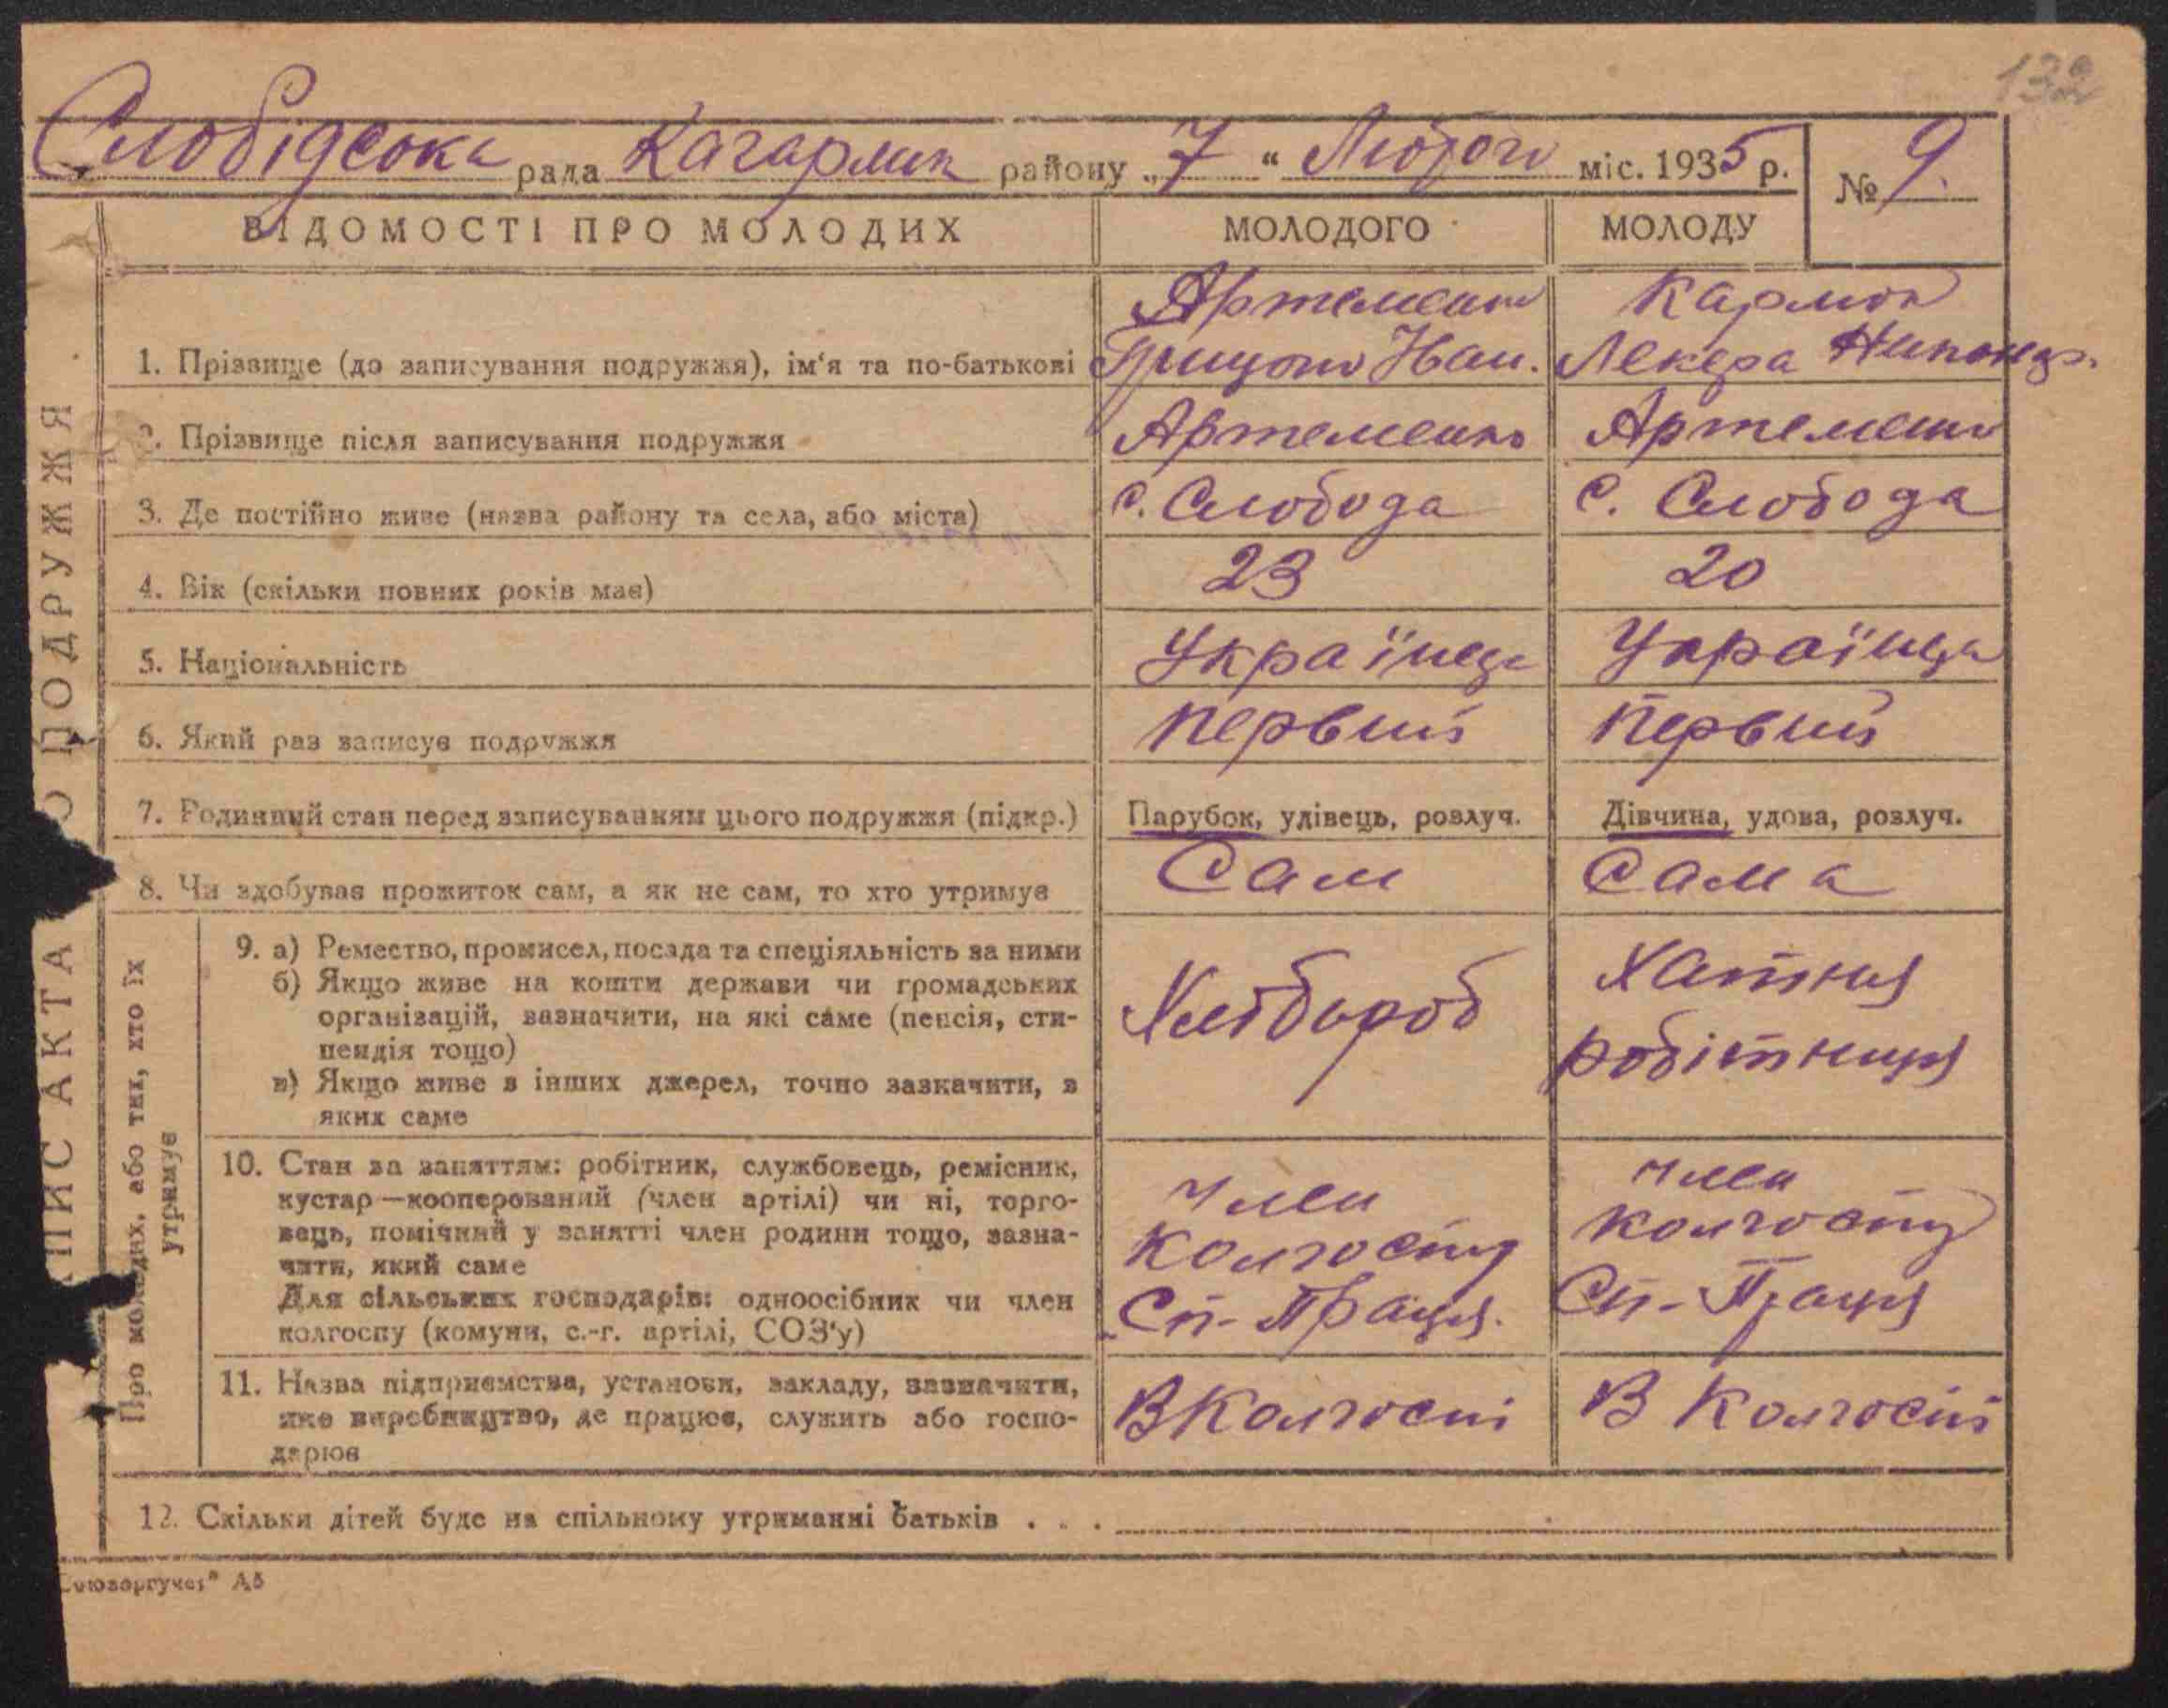 132
Слобідська рада Кагарлик району „7“ Лютого міс. 1935 р. № 9.
ВІДОМОСТІ ПРО МОЛОДИХ МОЛОДОГО МОЛОДУ
Артеменко Кармон
1. Прізвище (до записування подружжя), ім‘я та по-батькові Грицько Іван.
2. Прізвище після записування подружжя Артеменко Артеменко
3. Де постійно живе (назва району та села, або міста) с. Слобода с. Слобода
4. Вік (скільки повних років має) 23 20
5. Національність Українець Українка
6. Який раз записує подружжя Первий Первий
7. Родинний стан перед записуванням цього подружжя (підкр.) Парубок, удівець, розлуч. Дівчина, удова, розлуч.
8. Чи здобував прожиток сам, а як не сам, то хто утримує Сам Сама
ПИС АКТА О ПОДРУЖЖЯ
Про молодих, або тих, хто їх
утримує
9. а) Ремество, промисел, посада та спеціяльність за ними
б) Якщо живе на кошти держави чи громадських
організацій, вазначити, на які саме (пенсія, сти-
пендія тощо)
в) Якщо живе в інших джерел, точно зазначити, в
яких саме
Хлібороб
Хатня
робітниця
10. Стан за заняттям: робітник, службовець, ремісник,
кустар—кооперований (член артілі) чи ні, торго-
вець, помічний у занятті член родини тощо, зазна-
чити, який саме
Для сільських господарів: одноосібник чи член
колгоспу (комуни, с.-г. артілі, СОЗ‘у)
член
колгоспу
Сп-Праця.
член
колгоспу
Сп-Праця
11. Назва підприємства, установи, закладу, зазначити,
яке виробництво, де працює, служить або госпо-
дарює
В Колгоспі В Колгоспі
12. Скільки дітей буде на спільному утриманні батьків . . .
Союзоргучет" А5